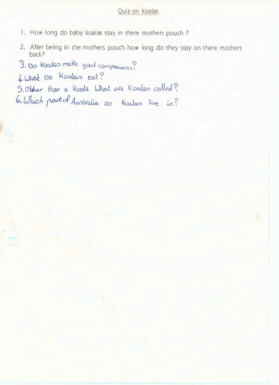 Quiz on Koalas
1. How long do baby koalas stay in there mothers pouch ?
2. After being in the mothers pouch how long do they stay on there mothers
back?
3. Do Koalas make good companions?
4. What do Koalas eat?
5. Other than a Koala what are Koalas called?
6. Which part of Australia do Koalas live in?